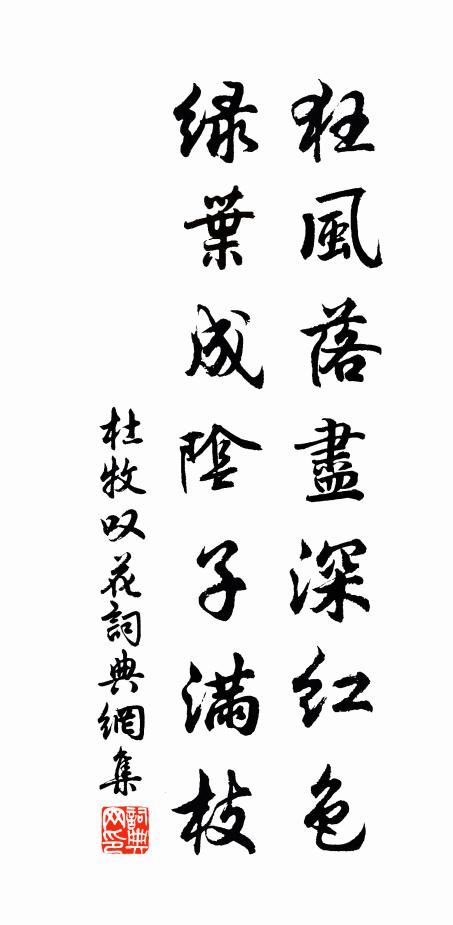 狂風落盡深紅色
緑葉成陰子滿枝
杜牧叹花詞典網集
詞典网印